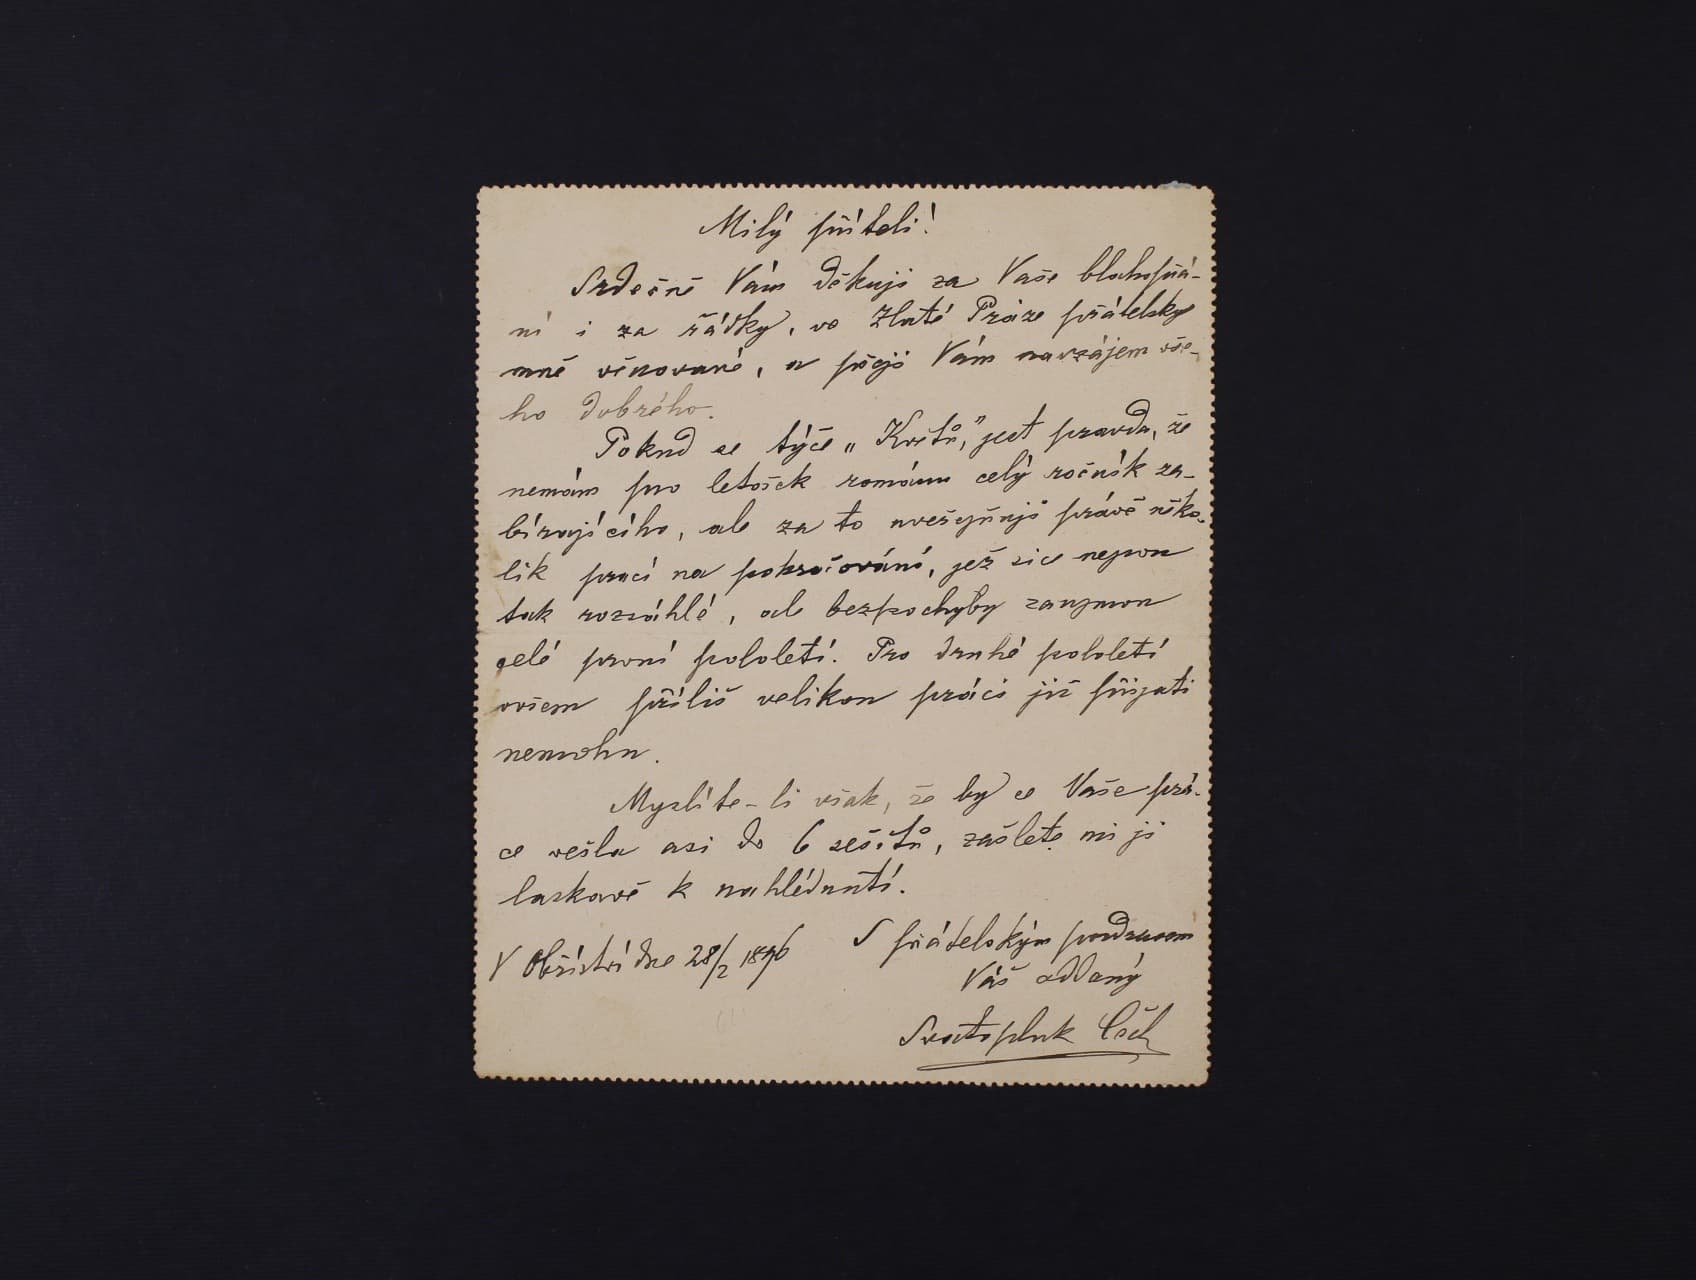 Milý příteli!
Srdečně Vám děkuji za Vaše blahopřá-
ní i za řádky, ve Zlaté Praze přátelsky
mně věnované, a přeji Vám navzájem vše-
ho dobrého.
Pokud se týče „Květů," jest pravda, že
nemám pro letošek románu celý ročník za-
bírajícího, ale za to uveřejňuji právě něko-
lik prací na pokračování, jež sice nejsou
tak rozsáhlé, ale bezpochyby zaujmou
celé první pololetí. Pro druhé pololetí
ovšem příliš velikou práci již přijati
nemohu.
Myslíte-li však, že by se Vaše prá-
ce vešla asi do 6 sešitů, zašlete mi ji
laskavě k nahlédnutí.
S přátelským pozdravem
V Obříství dne 28/2 1896
Váš oddaný
Svatopluk Čech